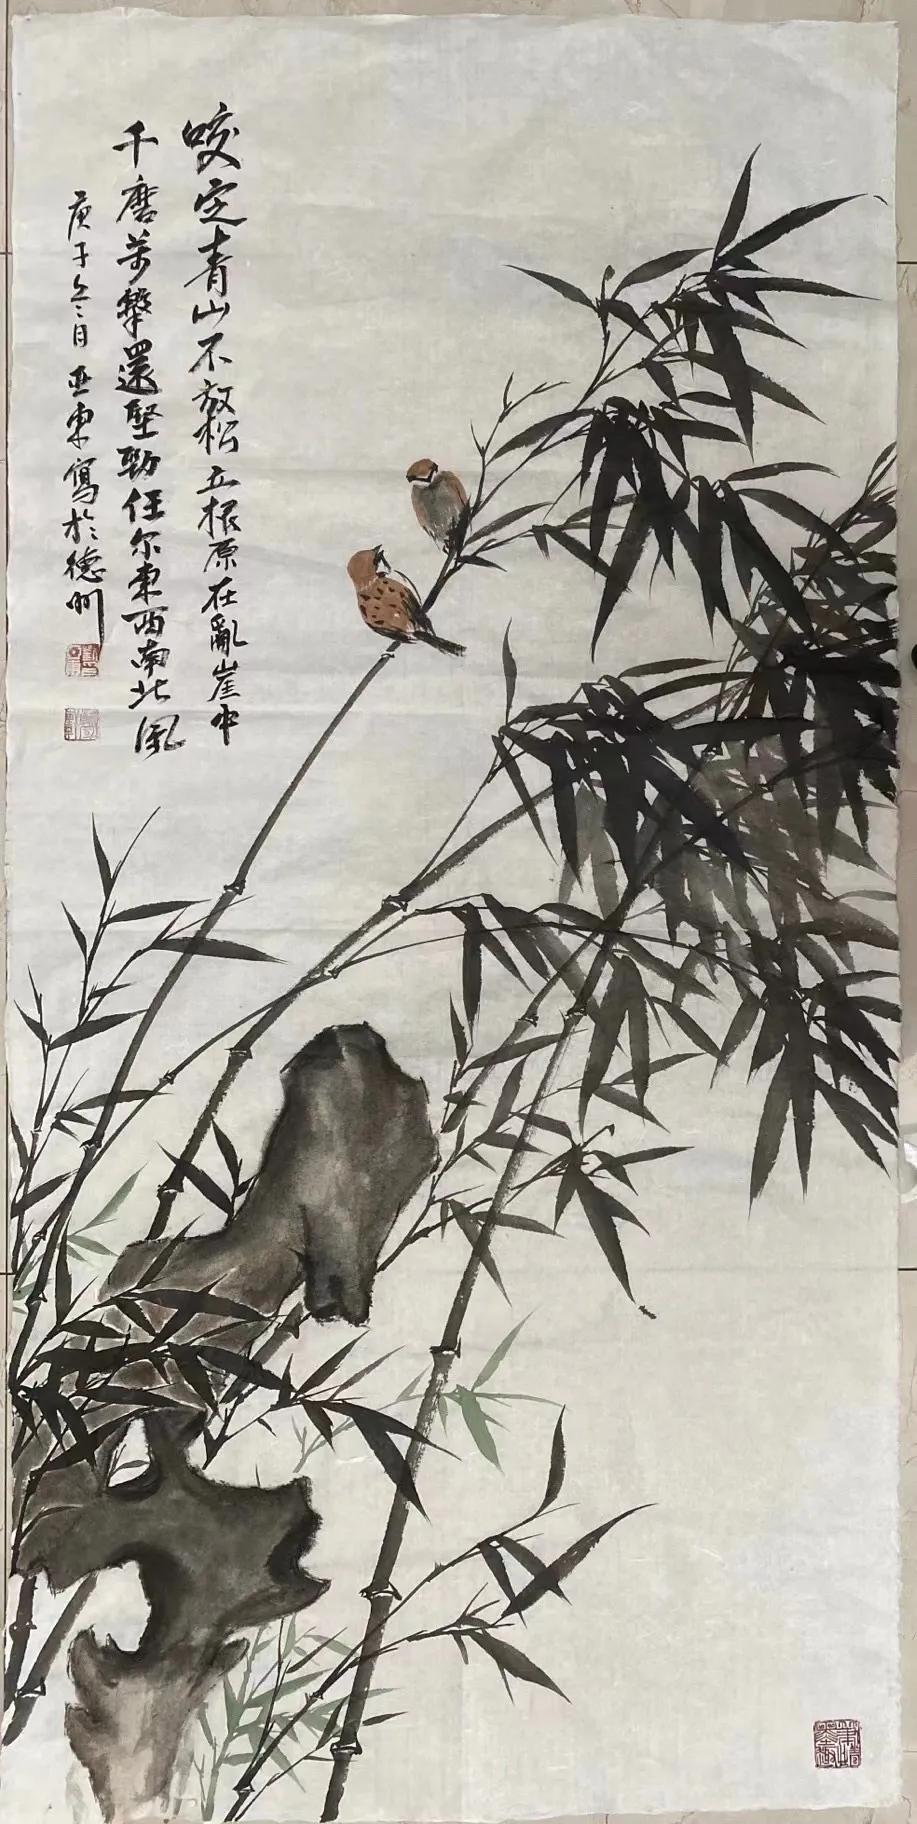 咬定青山不放松立根原在亂崖中
千磨万擊還堅勁任尔東西南北風
庚子冬月亚東寫於德州